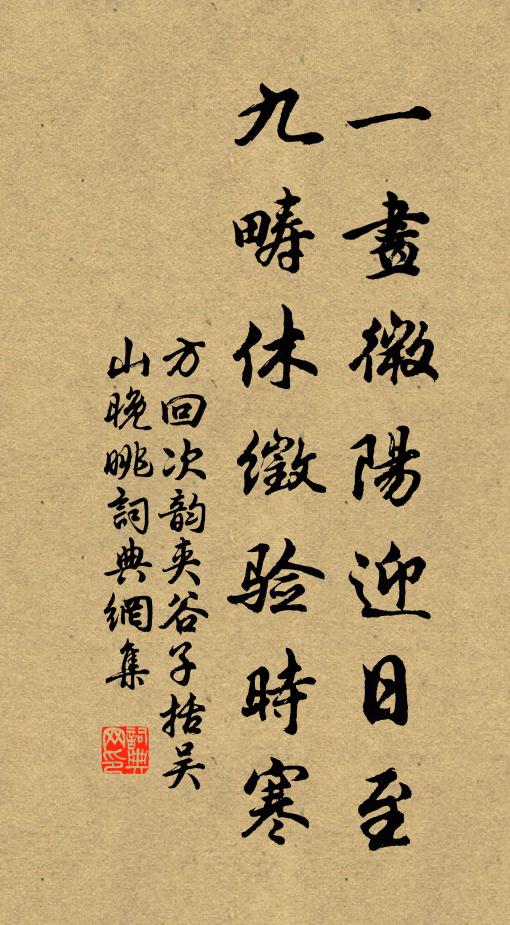 一畫微陽迎日至
九疇休徵验時寒
方回次韵夹谷子括吴
山晚眺詞典網集
詞典网印